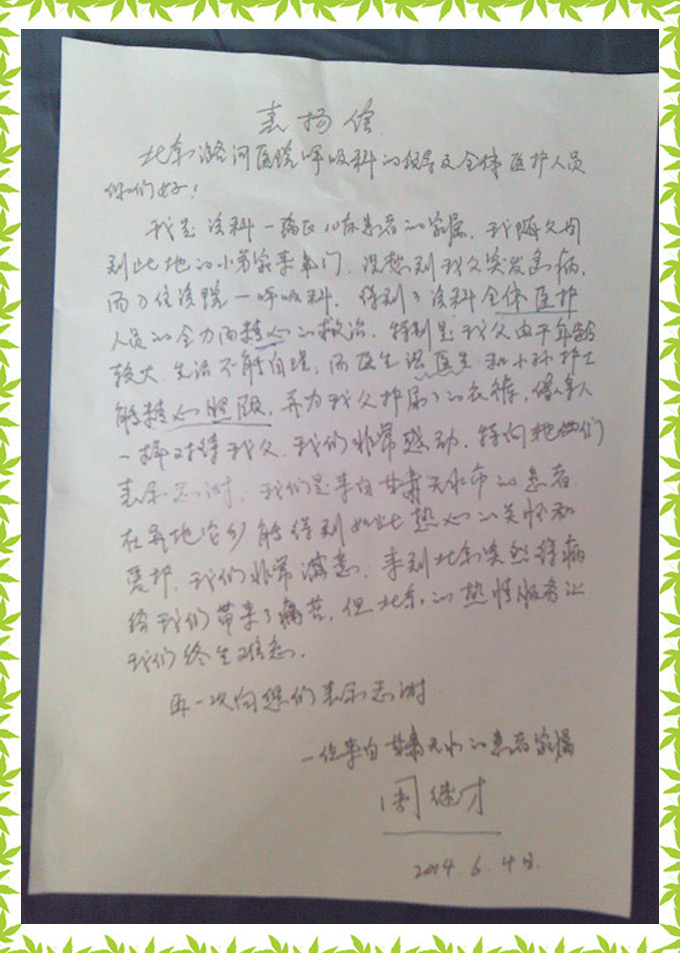 表扬信
北京潞河医院呼吸科的领导及全体医护人员
你们好！
我是该科一病区10床患者的家属，我随父母
到此地的小弟家串门，没想到我父突发急病，
而住该院一呼吸科，得到了该科全体医护
人员的全力而精心的救治，特别是我父由于年龄
较大，生活不能自理，而医生温医生和小孙护士
能精心照顾，并为我父护尿的衣裤，像亲人
一样对待我父，我们非常感动，特向她们
表示感谢，我们是来自甘肃天水市的患者
在异地它乡能得到如此热心的关怀和
爱护，我们非常满意，来到北京突然得病
给我们带来了痛苦，但北京的热情服务让
我们终生难忘。
再一次向您们表示感谢
一位来自甘肃天水的患者家属
周继才
2014.6.4日